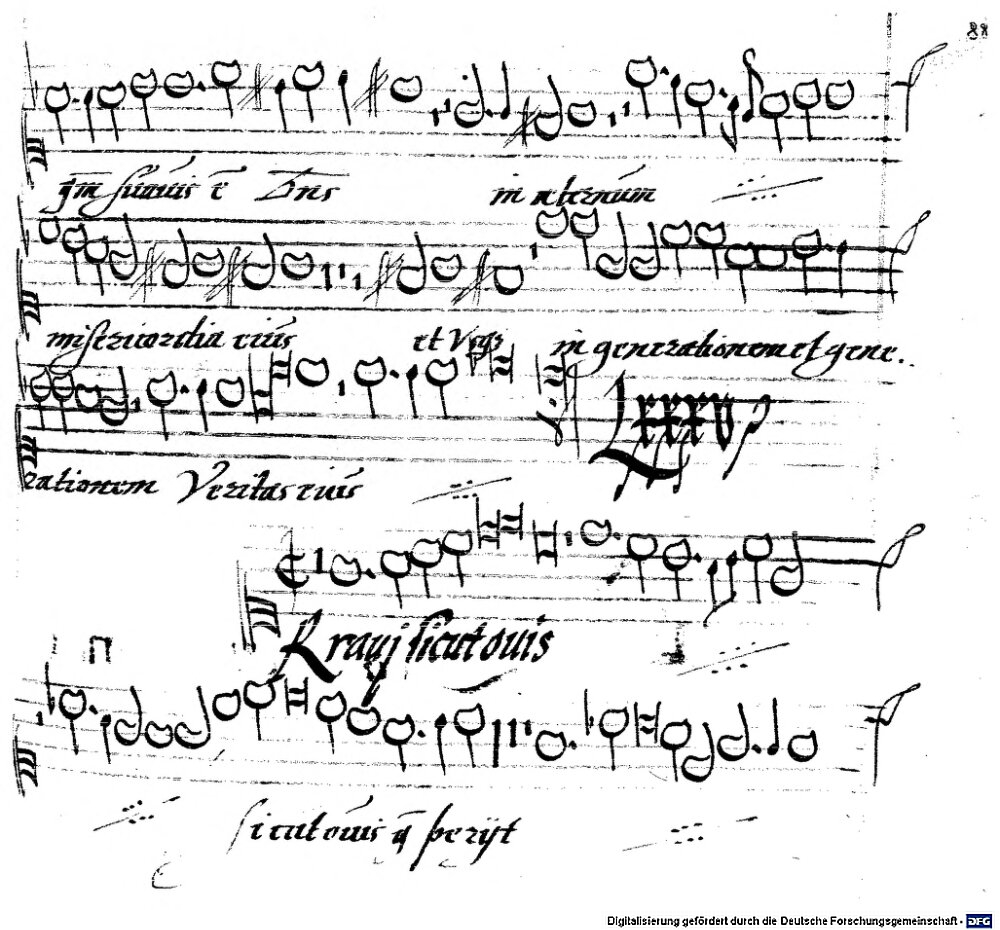 88
qm̄ suauis ē Dn̄s in aeternum
misericordia eius et Vsqȝ in generationem et gene.
rationem Veritas eius
LXXXV
Erraui sicut ouis
sicut ouis q̄ perijt
Digitalisierung gefördert durch die Deutsche Forschungsgemeinschaft - DFG